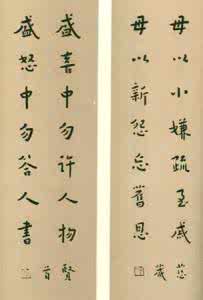 毋以小嫌疏至戚
毋以新怨忘舊恩
盛喜中勿許人物
盛怒中勿答人書
賢首